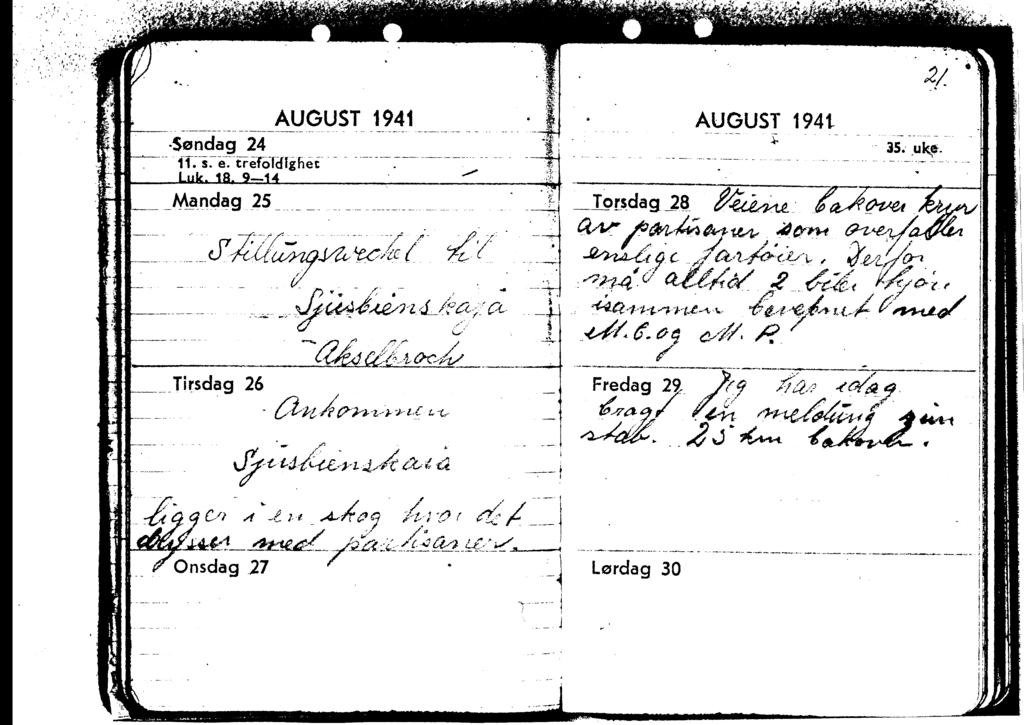 21.
AUGUST 1941
Søndag 24
11. s. e. trefoldighet
Luk. 18. 9—14
Mandag 25
Stillungswechel til
Sjüsbienskaja
Akselbroch
Tirsdag 26
Ankommen
Sjüsbienskaia
ligger i en skog hvor det
med partisaner.
Onsdag 27
AUGUST 1941
35. uke.
Torsdag 28 Veiene bakover kryr
av partisaner som overfaller
enslige fartöier. Derfor
må alltid 2 biler kjöre
isammen bevepnet med
M.G. og M.P.
Fredag 29 Jeg har idag
bragt en meldung zum
stab. 25 km bakover.
Lørdag 30